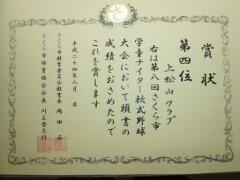 賞状
第四位
上松山クラブ
右は第八回さくら市
学童ナイター軟式野球
大会において頭書の
成績をおさめたので
これを賞します
平成二十四年八月 日
さくら市教育委員会教育長 岡田
さくら市体育協会会長 川上